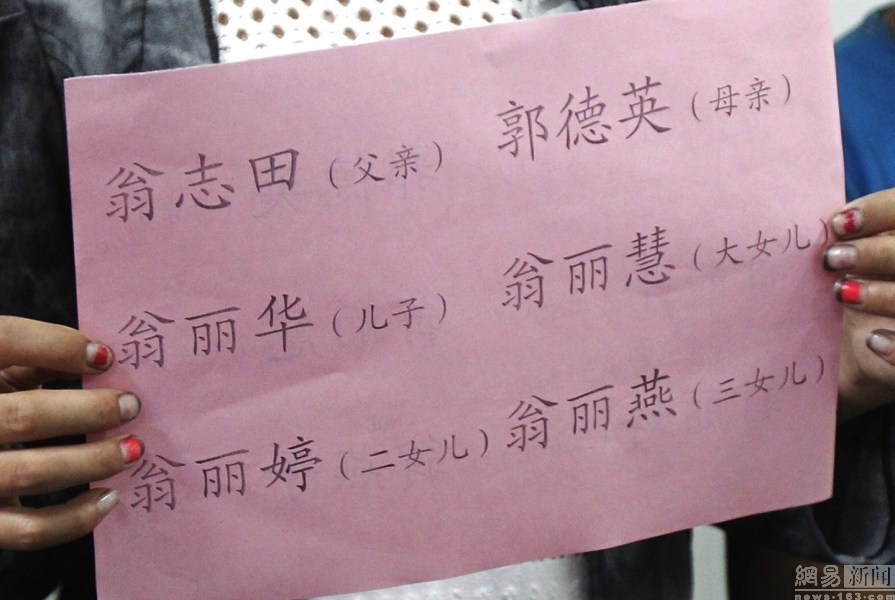 翁志田（父亲） 郭德英（母亲）
翁丽华（儿子） 翁丽慧（大女儿）
翁丽婷（二女儿） 翁丽燕（三女儿）
網易 新闻
news.163.com